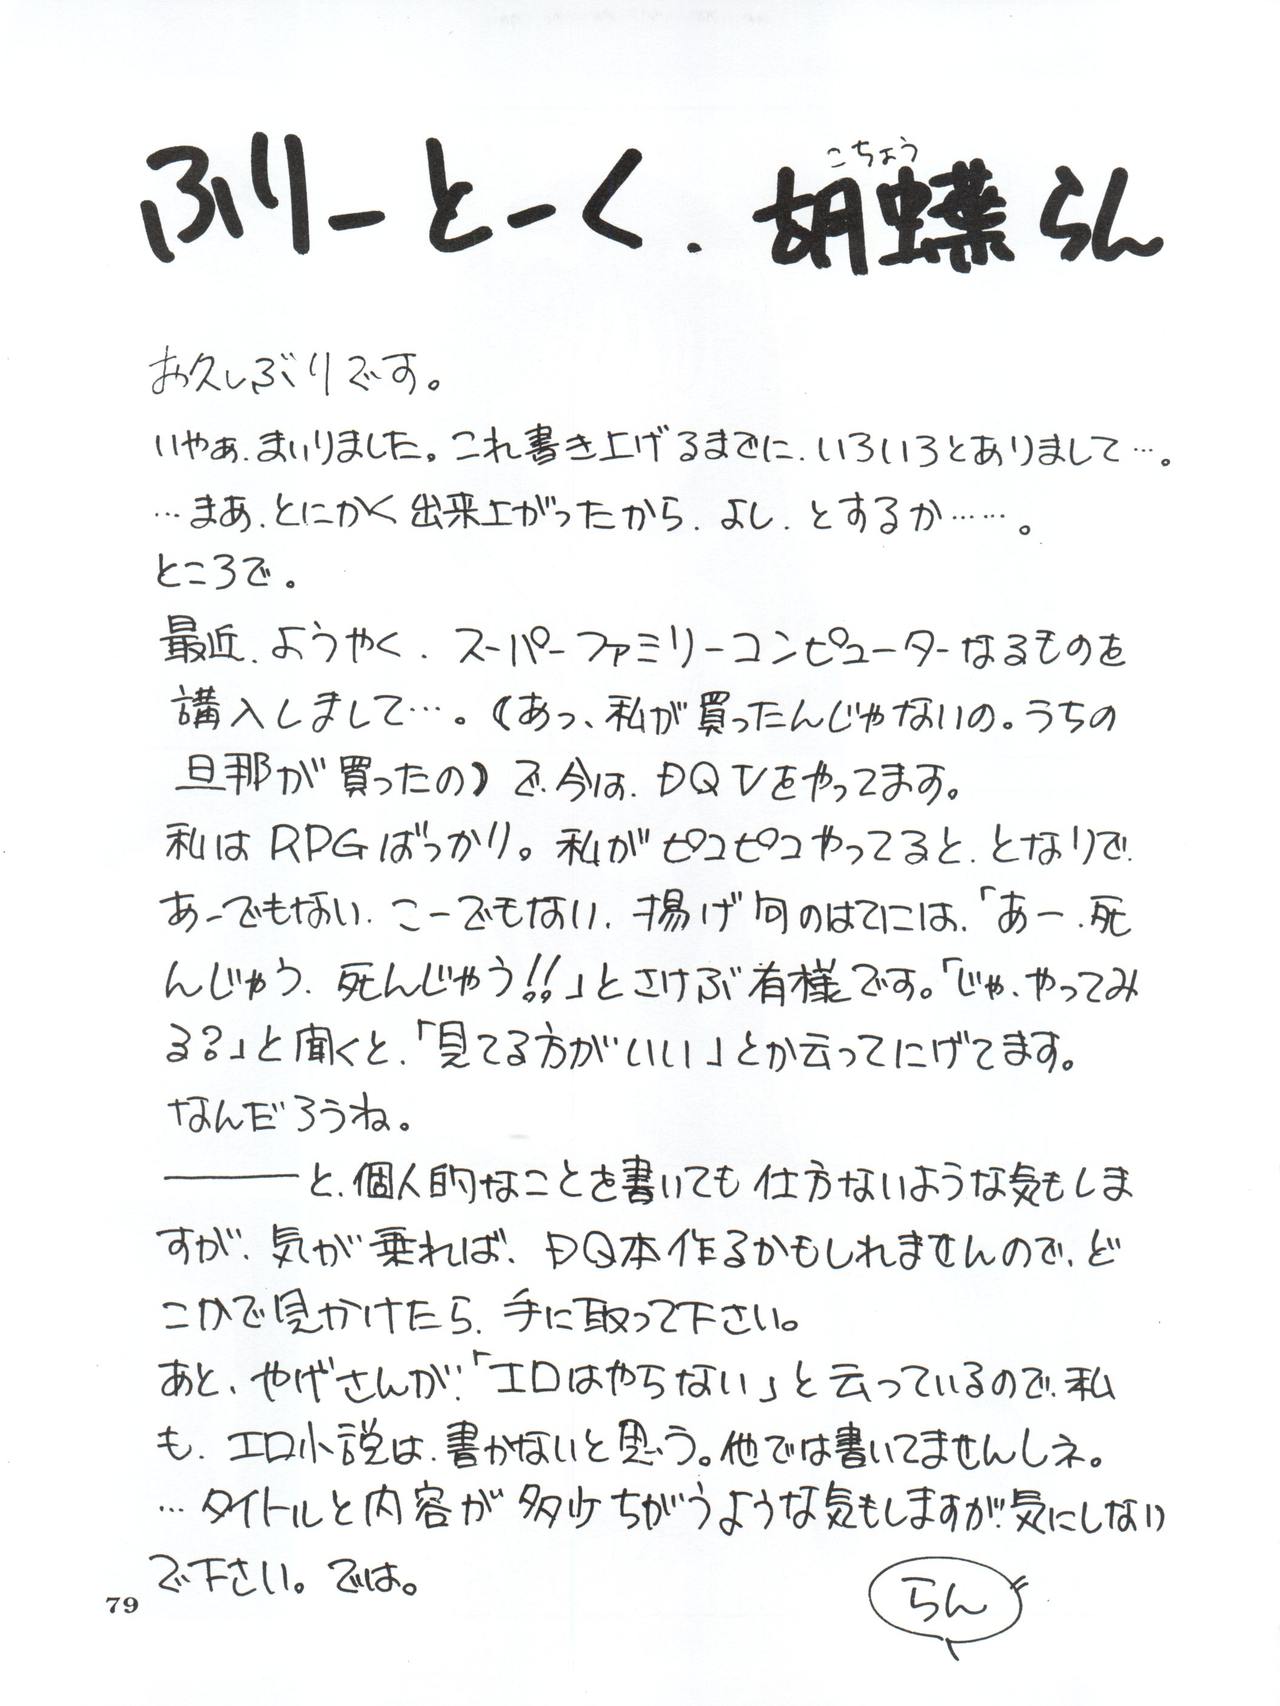 ふりーとーく. 胡蝶らん
こちょう
お久しぶりです。
いやぁ、まいりました。これ書き上げるまでに、いろいろとありまして…。
…まあ、とにかく出来上がったから、よし、とするか……。
ところで。
最近、ようやく、スーパーファミリーコンピューターなるものを
講入しまして…。(あっ、私が買ったんじゃないの。うちの
旦那が買ったの)で、今は、DQVをやってます。
私はRPGばっかり。私がピコピコやってると、となりで、
あーでもない、こーでもない、揚げ句のはてには、「あー、死
んじゃう、死んじゃう!!」とさけぶ有様です。「じゃ、やってみ
る?」と聞くと、「見てる方がいい」とか云ってにげてます。
なんだろうね。
――と、個人的なことを書いても仕方ないような気もしま
すが、気が乗れば、DQ本作るかもしれませんので、ど
こかで見かけたら、手に取って下さい。
あと、やげさんが、「エロはやらない」と云っているので、私
も、エロ小説は、書かないと思う。他では書いてませんしネ。
…タイトルと内容が多少ちがうような気もしますが、気にしない
で下さい。では。
らん
79